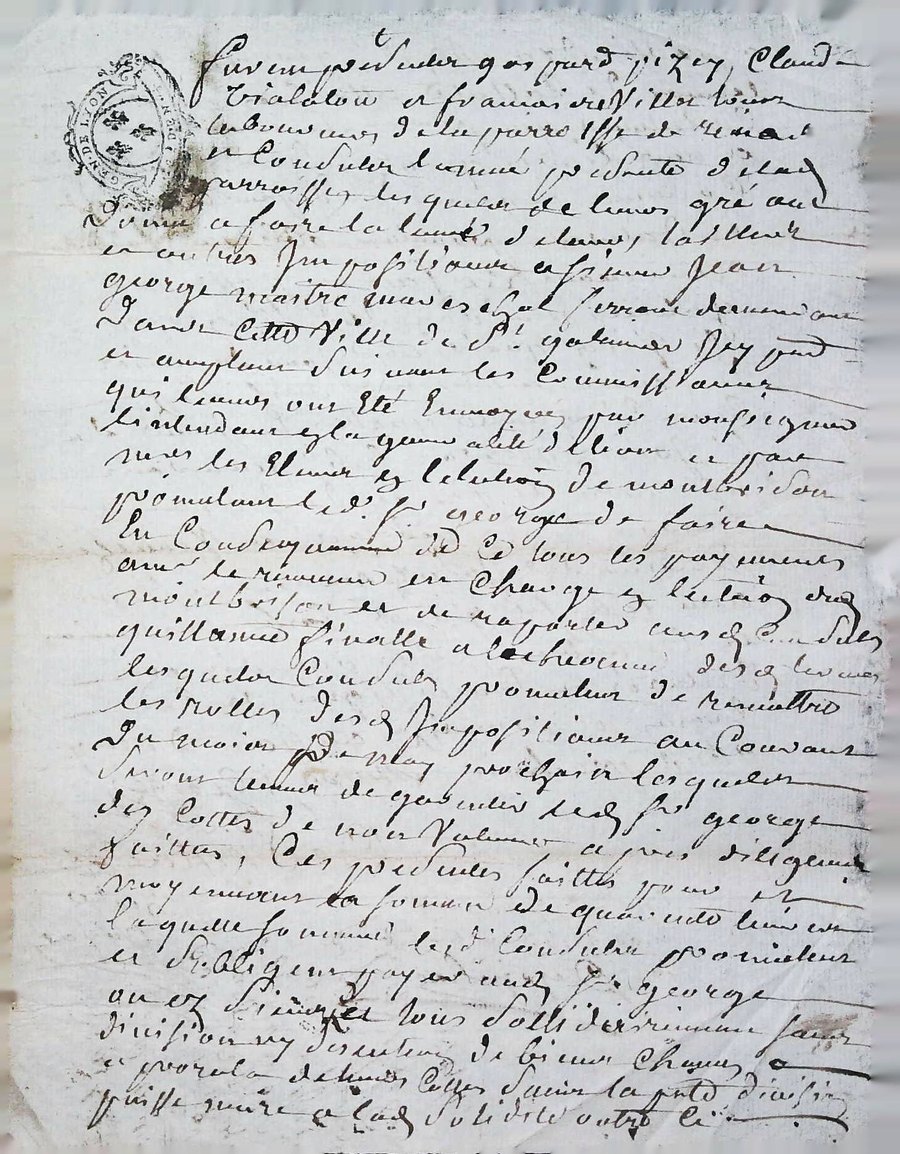 GEN DE LYON
furent présents gaspard pizey, Claude
Vialaton et francois Villes tous
laboureurs de la parroisse de
et Consulz l'année présente de lad
parroisse, lesquels de leurs gré ont
donné a faire la levée de leurs tailles
et autres Impositions a sieur Jean
george maitre mareschal ferrant demeurant
dans cette Ville de St galmier Icy pnt
et acceptant suivant les Commissions
qui leurs ont Eté Envoyez par monseigneur
lintendant en la generalité de lion et par
mrs les Elus en lelection de montbrison
promettant led. sr george de faire
En Consequence de Ce tous les payements
aux receveurs en Charge en lection dud
montbrison et de raporter ausd Consulz
quittance finalle a lecheance desd termes
lesquels Consulz promettent de remettre
les rolles desd Impositions au Courant
Du mois De may prochain lesquels
seront tenus de garentir led sr george
des Cottes de non Valeurs apres diligences
faittes, Ces presentes faittes pour et
moyennant la somme de quarente livres
laquelle somme lesd Consulz promettent
et sobligent payer aud sr george
ou es siens et tous sollidairement sans
division ny discution de biens
et pour la de leurs Cottes sans que lad division
puisse nuire a lad solidité outre Ce